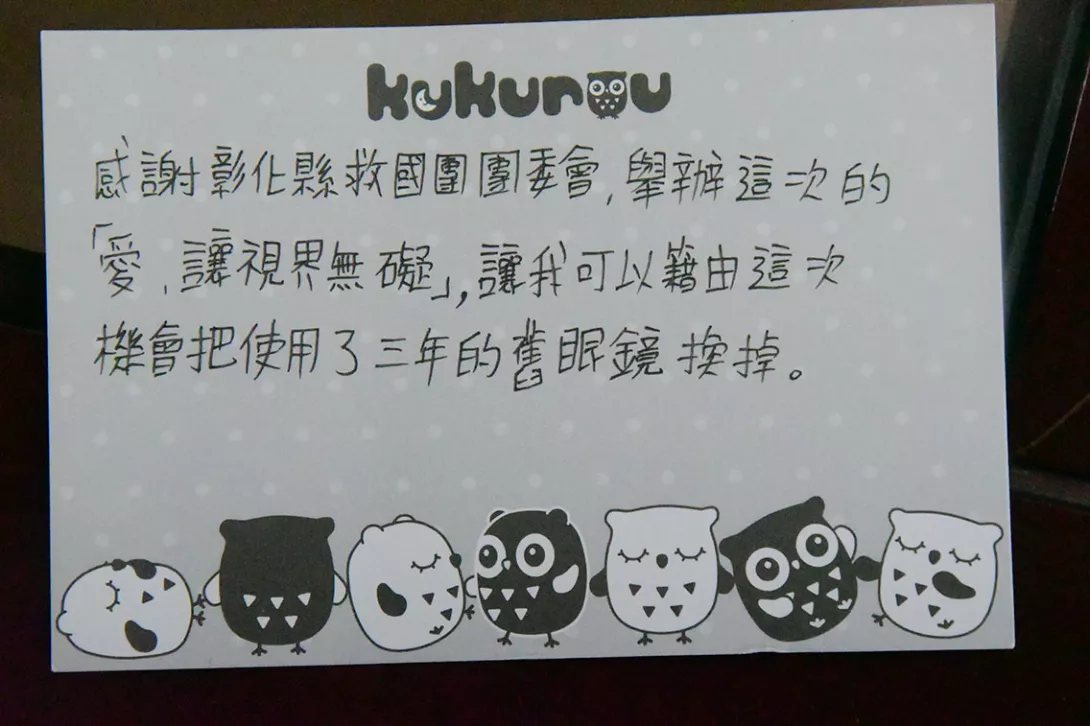 kukurou
感謝彰化縣救國團團委會,舉辦這次的
「愛,讓視界無礙」,讓我可以籍由這次
機會把使用了三年的舊眼鏡換掉。